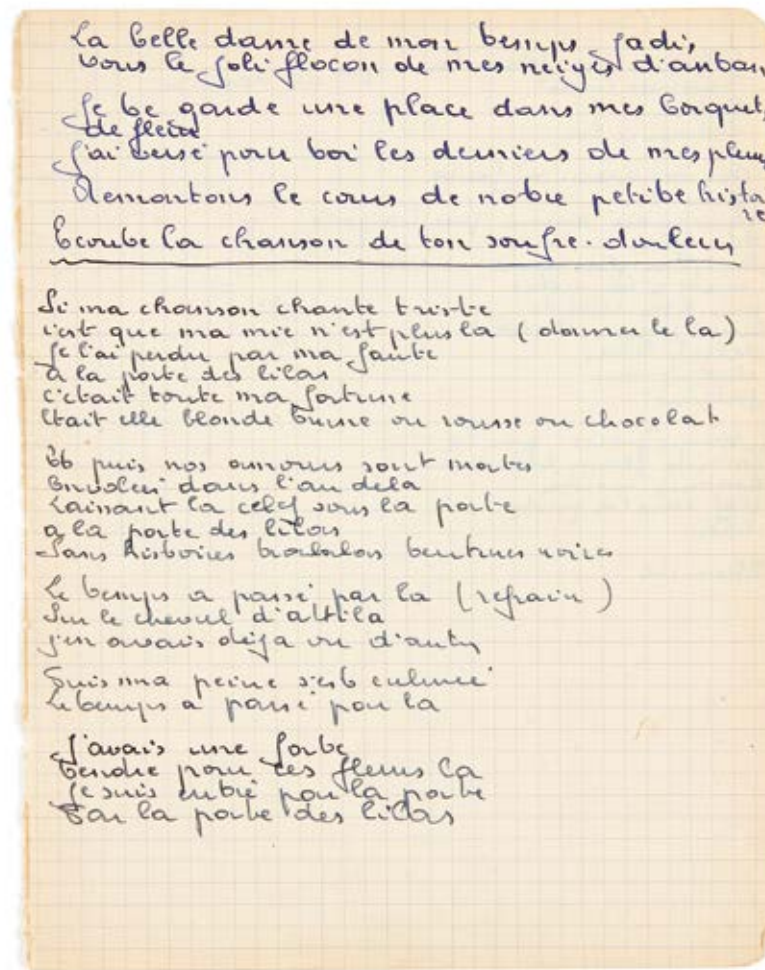 La belle dame de mon temps jadis,
vous le joli flocon de mes neiges d'antan,
Je te garde une place dans mes bosquets
de fleur
J'ai versé pour toi les derniers de mes pleurs
Remontons le cours de notre petite histoi
re
Ecoute la chanson de ton soufre-douleur
Si ma chanson chante triste
c'est que ma mie n'est plus la (donner le la)
Je l'ai perdu par ma faute
a la porte des lilas
c'était toute ma fortune
Etait elle blonde brune ou rousse ou chocolat
Et puis nos amours sont mortes
Envolés dans l'au dela
Laissant la celef sous la porte
a la porte des lilas
Sans histoires tralalas tentures noires
Le temps a passé par la (refrain)
Sur le cheval d'attila
j'en avais déja vu d'autres
Puis ma peine s'est
Le temps a passé par la
J'avais une forte
tendre pour ces fleurs la
Je suis entré par la porte
Par la porte des lilas